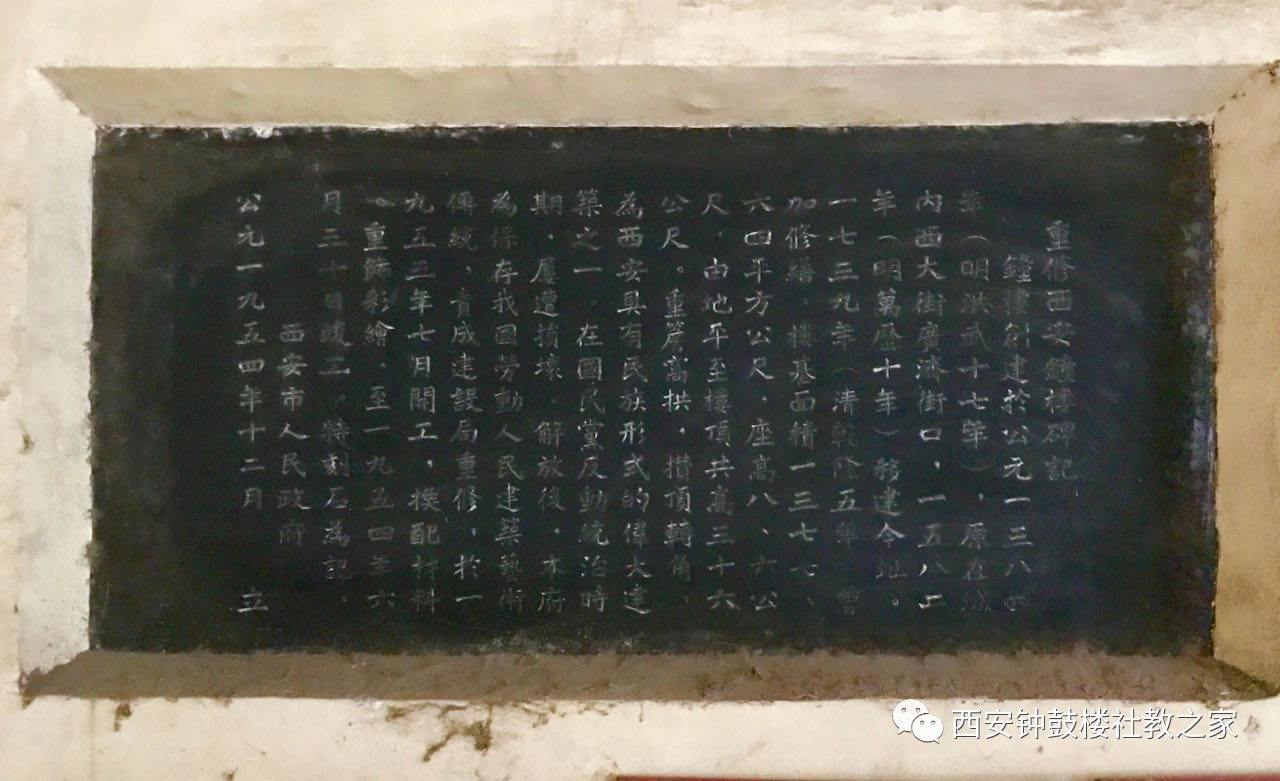 重修西安鐘樓碑記
鐘樓創建於公元一三八四
年（明洪武十七年），原在城
內西大街廣濟街口，一五八二
年（明萬歷十年）移建今址。
一七三九年（清乾隆五年）曾
加修繕。樓基面積一三七七、
六四平方公尺，座高八、六公
尺，由地平至樓頂共高三十六
公尺。重簷高拱，攢頂轉角，
為西安具有民族形式的偉大建
築之一。在國民黨反動統治時
期，屢遭損壞。解放後，本府
為保存我國勞動人民建築藝術
傳統，責成建設局重修，於一
九五三年七月開工，換配材料
，重飾彩繪，至一九五四年六
月三十日竣工。特刻石為記。
西安市人民政府
公元一九五四年十二月 立
西安钟鼓楼社教之家